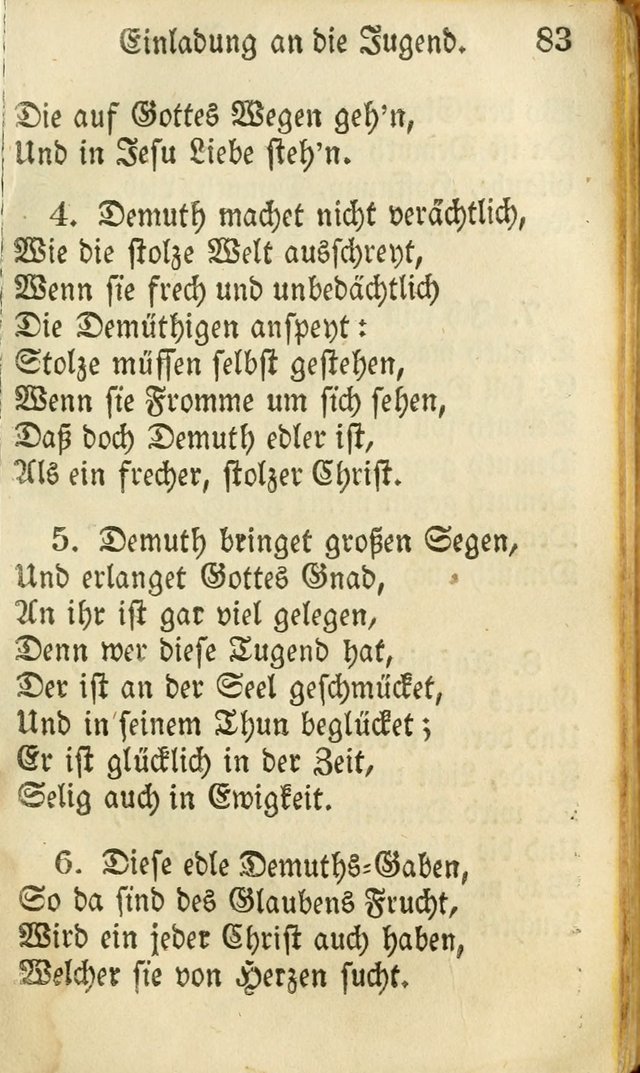 Einladung an die Jugend. 83
Die auf Gottes Wegen geh'n,
Und in Jesu Liebe steh'n.
4. Demuth machet nicht verächtlich,
Wie die stolze Welt ausschreyt,
Wenn sie frech und unbedächtlich
Die Demüthigen anspeyt:
Stolze müssen selbst gestehen,
Wenn sie Fromme um sich sehen,
Daß doch Demuth edler ist,
Als ein frecher, stolzer Christ.
5. Demuth bringet großen Segen,
Und erlanget Gottes Gnad,
An ihr ist gar viel gelegen,
Denn wer diese Tugend hat,
Der ist an der Seel geschmücket,
Und in seinem Thun beglücket;
Er ist glücklich in der Zeit,
Selig auch in Ewigkeit.
6. Diese edle Demuths-Gaben,
So da sind des Glaubens Frucht,
Wird ein jeder Christ auch haben,
Welcher sie von Herzen sucht.